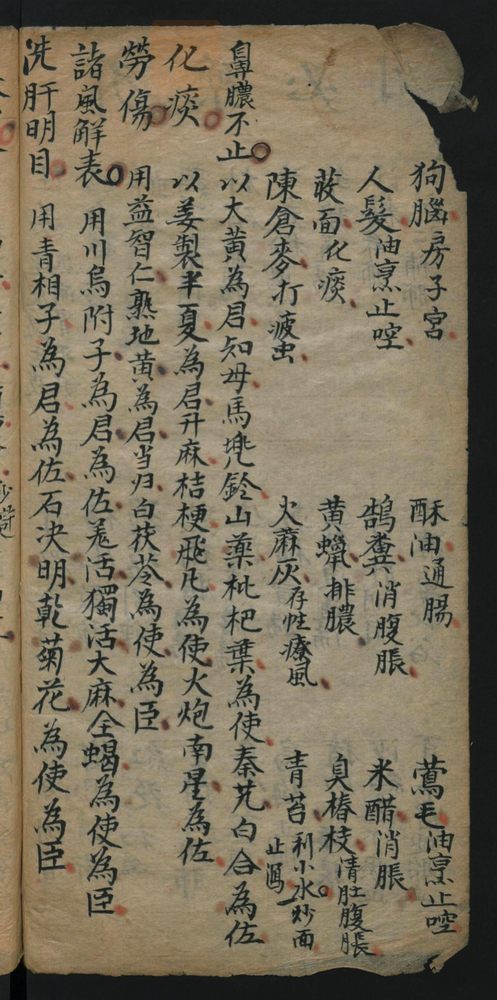 狗腦房子宮 酥油通腸 鶯毛油烹止啌
人髮油烹止啌 鵠糞消腹脹 米醋消脹
莜面化痰 黄蠟排膿 臭椿枝清肚腹脹
陳倉麥打疲虫 火麻灰存性療風 青苔利小水炒面止瀉
鼻膿不止 以大黄為君知母馬兜鈴山藥枇杷葉為使秦艽白合為佐
化痰 以姜製半夏為君升麻桔梗飛凡為使火炮南星為佐
勞傷 用益智仁熟地黄為君当归白茯苓為使為臣
諸風解表 用川烏附子為君為佐羌活獨活大麻全蝎為使為臣
洗肝明目 用青相子為君為佐石决明乾菊花為使為臣